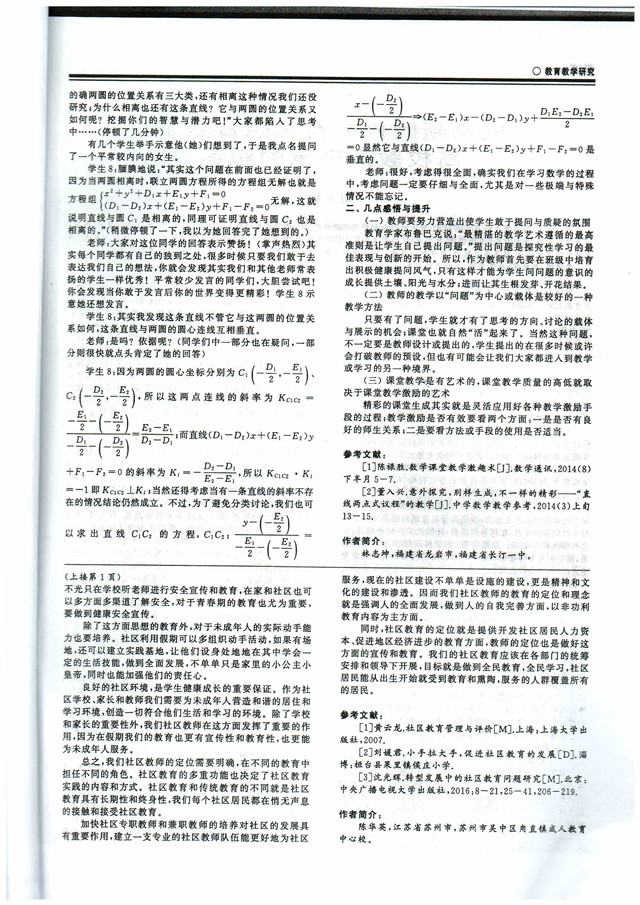 ○ 教育教学研究
的确两圆的位置关系有三大类,还有相离这种情况我们还没
研究;为什么相离也还有这条直线?它与两圆的位置关系又
如何呢?挖掘你们的智慧与潜力吧!”大家都陷入了思考
中……(停顿了几分钟)
有几个学生举手示意他(她)们想到了,于是我点名提问
了一个平常较内向的女生。
学生8:腼腆地说:“其实这个问题在前面也已经证明了,
因为当两圆相离时,联立两圆方程所得的方程组无解也就是
方程组{x²+y²+D₁x+E₁y+F₁=0
(D₁-D₂)x+(E₁-E₂)y+F₁-F₂=0 无解,这就
说明直线与圆 C₁ 是相离的,同理可证明直线与圆 C₂ 也是
相离的。”(稍微停顿了一下,我以为她回答完了她想到的。)
老师:大家对这位同学的回答表示赞扬!(掌声热烈)其
实每个同学都有自己的独到之处,很多时候只要我们敢于去
表达我们自己的想法,你就会发现其实我们和其他老师常表
扬的学生一样优秀!平常较少发言的同学们,大胆尝试吧!
你会发现当你敢于发言后你的世界变得更精彩!学生 8 示
意她还想发言。
学生8:其实我发现这条直线不管它与这两圆的位置关
系如何,这条直线与两圆的圆心连线互相垂直。
老师:是吗?依据呢?(同学们中一部分也在疑问,一部
分则很快就点头肯定了她的回答)
学生8:因为两圆的圆心坐标分别为 C₁(-D₁/2,-E₁/2)、
C₂(-D₂/2,-E₂/2),所以这两点连线的斜率为 K_C₁C₂ =
(-E₁/2-(-E₂/2))/(-D₁/2-(-D₂/2))=(E₂-E₁)/(D₂-D₁);而直线(D₁-D₂)x+(E₁-E₂)y
+F₁-F₂=0 的斜率为 K_l=-(D₂-D₁)/(E₂-E₁),所以 K_C₁C₂·K_l
=-1 即 K_C₁C₂⊥K_l;当然还得考虑当有一条直线的斜率不存
在的情况结论仍然成立。不过,为了避免分类讨论,我们也可
以求出直线 C₁C₂ 的方程,C₁C₂:(y-(-E₂/2))/(-E₁/2-(-E₂/2))=
(x-(-D₂/2))/(-D₁/2-(-D₂/2))⇒(E₂-E₁)x-(D₂-D₁)y+(D₁E₂-D₂E₁)/2
=0 显然它与直线(D₁-D₂)x+(E₁-E₂)y+F₁-F₂=0 是
垂直的。
老师:很好,考虑得很全面,确实我们在学习数学的过程
中,考虑问题一定要仔细与全面,尤其是对一些极端与特殊
情况不能忘记。
二、几点感悟与提升
(一)教师要努力营造出使学生敢于提问与质疑的氛围
教育学家布鲁巴克说:“最精湛的教学艺术遵循的最高
准则是让学生自己提出问题。”提出问题是探究性学习的最
佳表现与创新的开始。所以,作为教师首先要在班级中培育
出积极健康提问风气,只有这样才能为学生问问题的意识的
成长提供土壤、阳光与水分;进而让其生根发芽、开花结果。
(二)教师的教学以“问题”为中心或载体是较好的一种
教学方法
只要有了问题,学生就才有了思考的方向、讨论的载体
与展示的机会;课堂也就自然“活”起来了。当然这种问题,
不一定要是教师设计或提出的,学生提出的在很多时候或许
会打破教师的预设,但也有可能会让我们大家都进入到教学
或学习的另一种境界。
(三)课堂教学是有艺术的,课堂教学质量的高低就取
决于课堂教学激励的艺术
精彩的课堂生成其实就是灵活应用好各种教学激励手
段的过程;教学激励是否有效要看两个方面:一是是否有良
好的师生关系;二是要看方法或手段的使用是否适当。
参考文献:
[1]陈禄胜.数学课堂教学激趣术[J].数学通讯,2014(8)
下半月 5-7.
[2]董入兴.意外探究,别样生成,不一样的精彩——“直
线两点式议程”的教学[J].中学数学教学参考,2014(3)上旬
13-15.
作者简介:
林志坤,福建省龙岩市,福建省长汀一中。
(上接第 1 页)
不光只在学校听老师进行安全宣传和教育,在家和社区也可
以多方面多渠道了解安全,对于青春期的教育也尤为重要,
要做到健康安全宣传。
除了这方面思想的教育外,对于未成年人的实际动手能
力也要培养。社区利用假期可以多组织动手活动,如果有场
地,还可以建立实践基地,让他们设身处地地在其中学会一
定的生活技能,做到全面发展,不单单只是家里的小公主小
皇帝,同时也能加强他们的责任心。
良好的社区环境,是学生健康成长的重要保证。作为社
区学校、家长和教师我们需要为未成年人营造和谐的居住和
学习环境,创造一切符合他们生活和学习的环境。除了学校
和家长的重要性外,我们社区教师在这方面发挥了重要的作
用,因为在假期我们的教育也更有宣传性和教育性,也更能
为未成年人服务。
总之,我们社区教师的定位需要明确,在不同的教育中
担任不同的角色。社区教育的多重功能也决定了社区教育
实践的内容和方式。社区教育和传统教育的不同就是社区
教育具有长期性和终身性,我们每个社区居民都在悄无声息
的接触和接受社区教育。
加快社区专职教师和兼职教师的培养对社区的发展具
有重要作用,建立一支专业的社区教师队伍能更好地为社区
服务,现在的社区建设不单单是设施的建设,更是精神和文
化的建设和渗透。因而我们社区教师的教育的定位和理念
就是强调人的全面发展,做到人的自我完善方面,以非功利
教育内容为主方面。
同时,社区教育的定位就是提供开发社区居民人力资
本、促进地区经济进步的教育方面,教师的定位也是做好这
方面的宣传和教育。我们的社区教育应该在各部门的统筹
安排和领导下开展,目标就是做到全民教育,全民学习,社区
居民能从出生开始就受到教育和熏陶,服务的人群覆盖所有
的居民。
参考文献:
[1]黄云龙.社区教育管理与评价[M].上海:上海大学出
版社,2007.
[2]刘媛君.小手拉大手,促进社区教育的发展[D].淄
博:桓台县果里镇侯庄小学.
[3]沈光辉.转型发展中的社区教育问题研究[M].北京:
中央广播电视大学出版社,2016:8-21,25-41,206-219.
作者简介:
陈华英,江苏省苏州市,苏州市吴中区甪直镇成人教育
中心校。